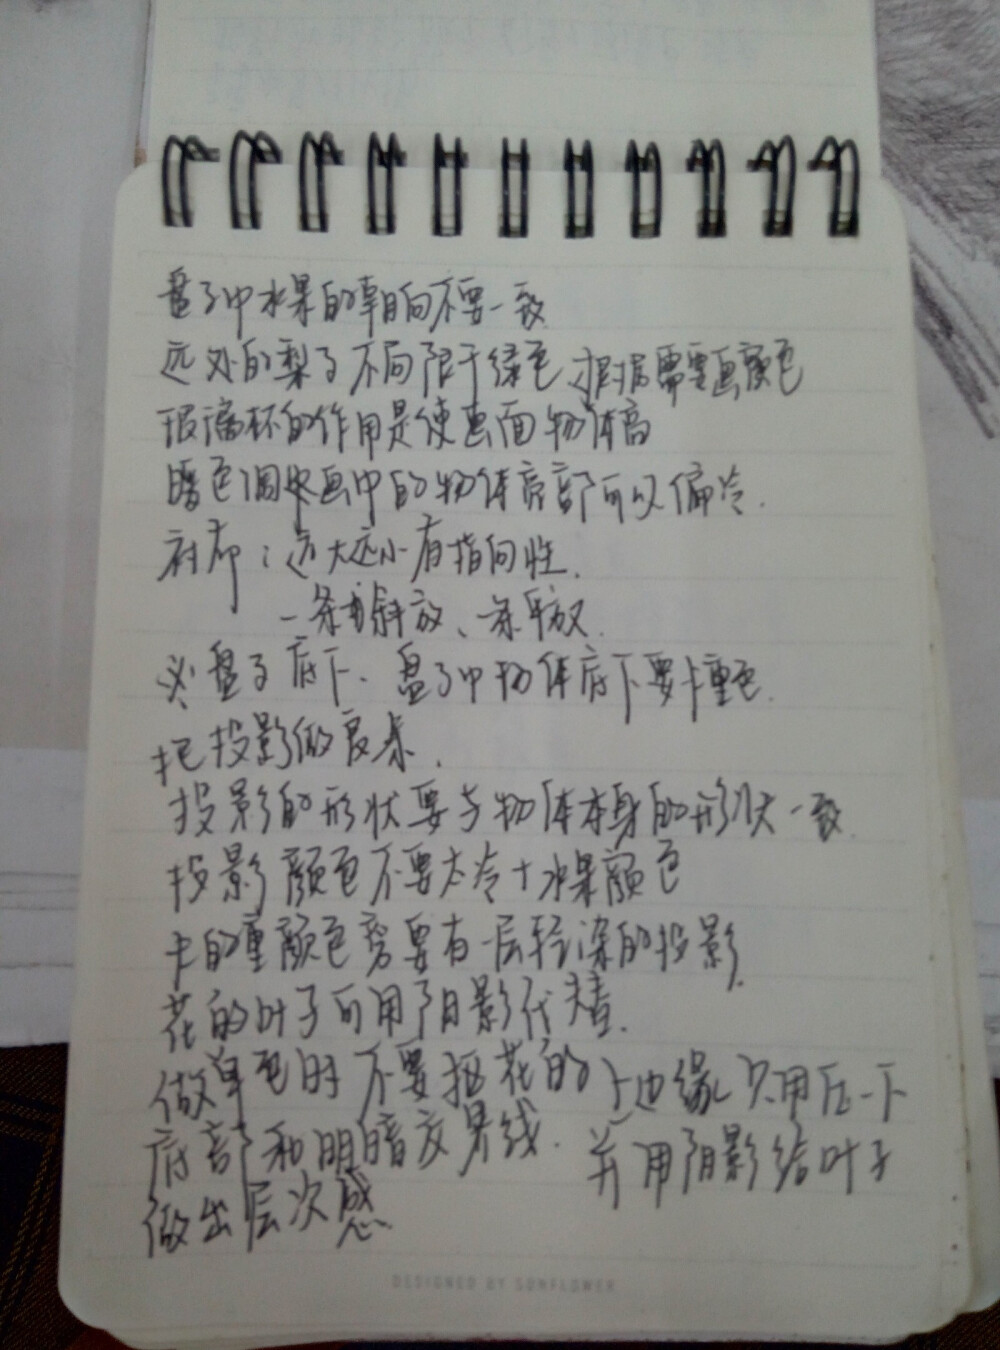 盘子中水果的朝向不要一致
远处的梨子不局限于绿色,根据需要画颜色
玻璃杯的作用是使画面物体高
暗色调 画中的物体亮部可以偏冷.
衬布:近大远小有指向性.
一条 斜放、一条平放.
盘子底下、盘子中物体底下要卡重色.
把投影做 .
投影的形状要与物体本身的形状一致.
投影颜色不要太冷+水果颜色
卡的重颜色旁要有一层轻淡的投影.
花的叶子可用阴影代替.
做单色时不要抠花的上边缘只用压一下
底部和明暗交界线.并用阴影给叶子
做出层次感
DESIGNED BY SUNFLOWER